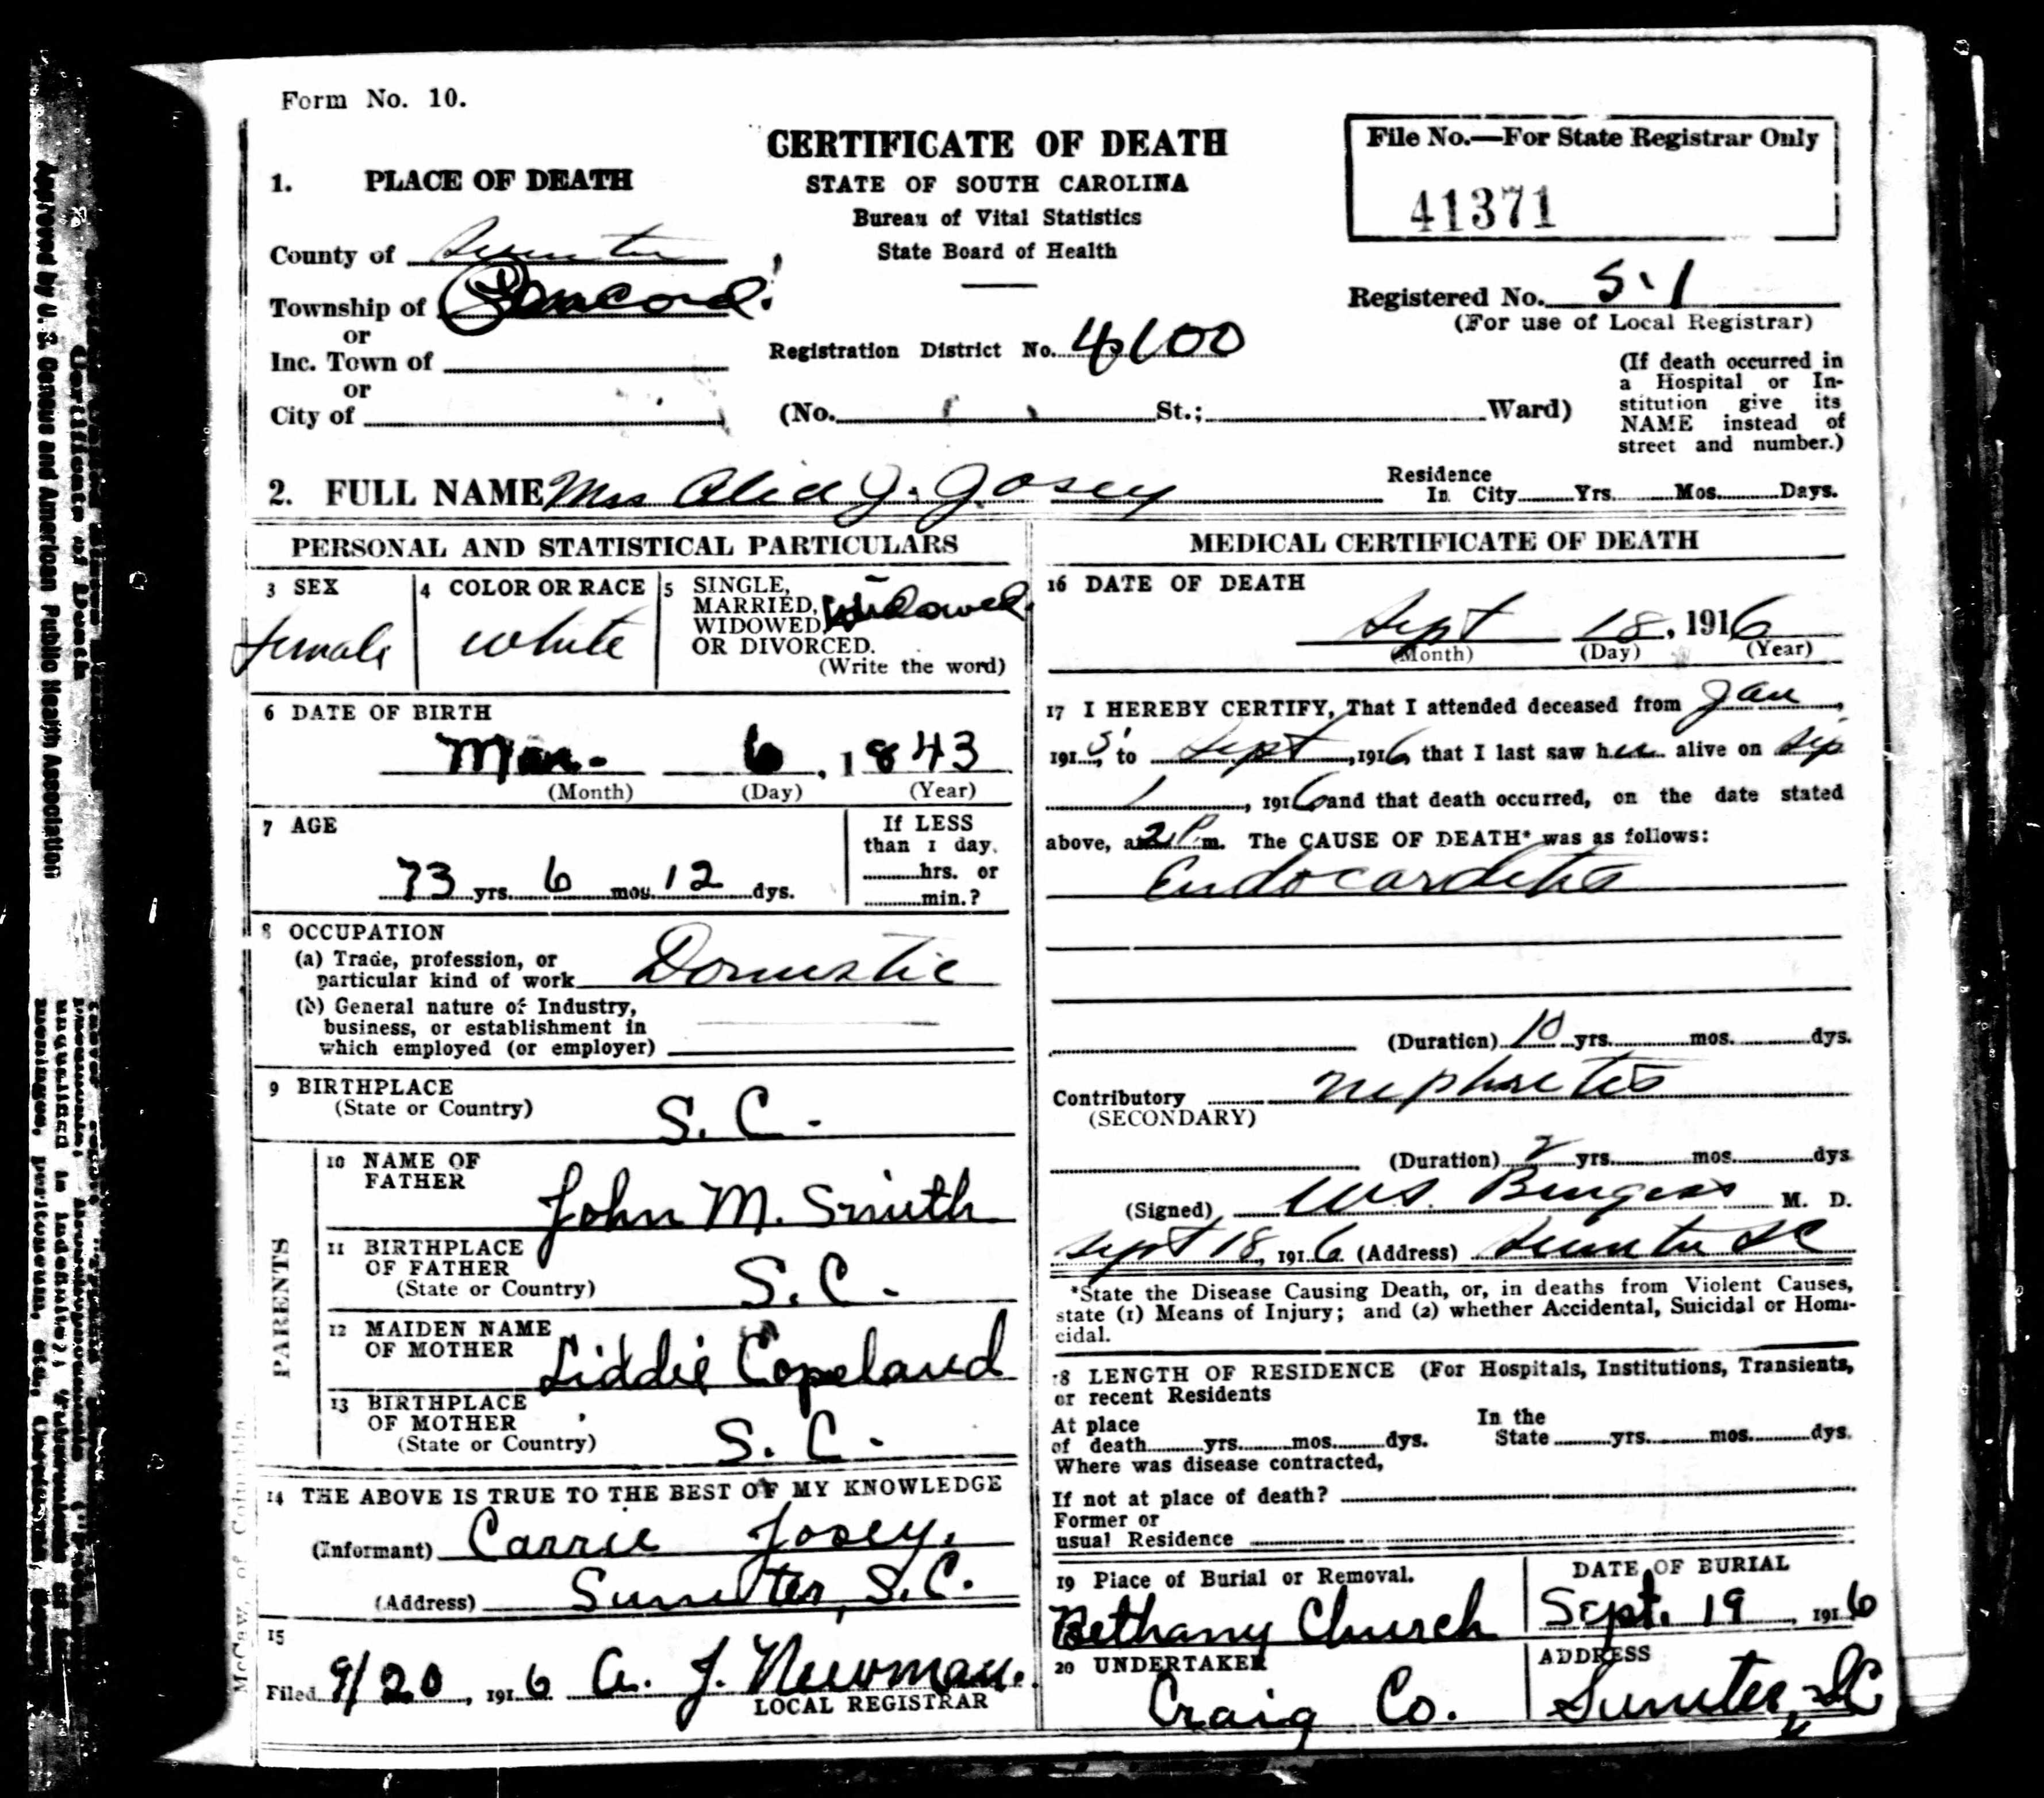 Form No. 10.
CERTIFICATE OF DEATH
STATE OF SOUTH CAROLINA
Bureau of Vital Statistics
State Board of Health
File No.—For State Registrar Only
41371
1. PLACE OF DEATH
County of Sumter
Township of Concord
or
Inc. Town of
or
City of
Registration District No. 4100
Registered No. 51
(For use of Local Registrar)
(No. St.; Ward)
(If death occurred in
a Hospital or In-
stitution give its
NAME instead of
street and number.)
2. FULL NAME Mrs Alice J. Josey
Residence
In City Yrs. Mos. Days.
PERSONAL AND STATISTICAL PARTICULARS
3 SEX
female
4 COLOR OR RACE
white
5 SINGLE,
MARRIED,
WIDOWED
OR DIVORCED.
(Write the word)
Widowed
6 DATE OF BIRTH
Mar. 6, 1843
(Month) (Day) (Year)
7 AGE
73 yrs. 6 mos. 12 dys.
If LESS
than 1 day.
hrs. or
min.?
8 OCCUPATION
(a) Trade, profession, or
particular kind of work Domestic
(b) General nature of Industry,
business, or establishment in
which employed (or employer)
9 BIRTHPLACE
(State or Country)
S. C.
PARENTS
10 NAME OF
FATHER
John M. Smith
11 BIRTHPLACE
OF FATHER
(State or Country)
S. C.
12 MAIDEN NAME
OF MOTHER
Liddie Copeland
13 BIRTHPLACE
OF MOTHER
(State or Country)
S. C.
14 THE ABOVE IS TRUE TO THE BEST OF MY KNOWLEDGE
(Informant) Carrie Josey.
(Address) Sumter, S.C.
15
Filed 9/20, 1916 A. J. Newman.
LOCAL REGISTRAR
MEDICAL CERTIFICATE OF DEATH
16 DATE OF DEATH
Sept 18, 1916
(Month) (Day) (Year)
17 I HEREBY CERTIFY, That I attended deceased from Jan,
1915, to Sept, 1916, that I last saw her alive on Sep
1, 1916 and that death occurred, on the date stated
above, at 2 P. m. The CAUSE OF DEATH* was as follows:
Endocarditis
(Duration) 10 yrs. mos. dys.
Contributory Nephritis
(SECONDARY)
(Duration) 2 yrs. mos. dys
(Signed) W S. Burgess M. D.
Sept 18, 1916 (Address) Sumter SC
*State the Disease Causing Death, or, in deaths from Violent Causes,
state (1) Means of Injury; and (2) whether Accidental, Suicidal or Homi-
cidal.
18 LENGTH OF RESIDENCE (For Hospitals, Institutions, Transients,
or recent Residents
At place
of death yrs. mos. dys.
In the
State yrs. mos. dys.
Where was disease contracted,
If not at place of death?
Former or
usual Residence
19 Place of Burial or Removal.
Bethany Church
DATE OF BURIAL
Sept. 19, 1916
20 UNDERTAKER
Craig Co.
ADDRESS
Sumter, SC
McCaw, of Columbia
Approved by U. S. Census and American Public Health Association